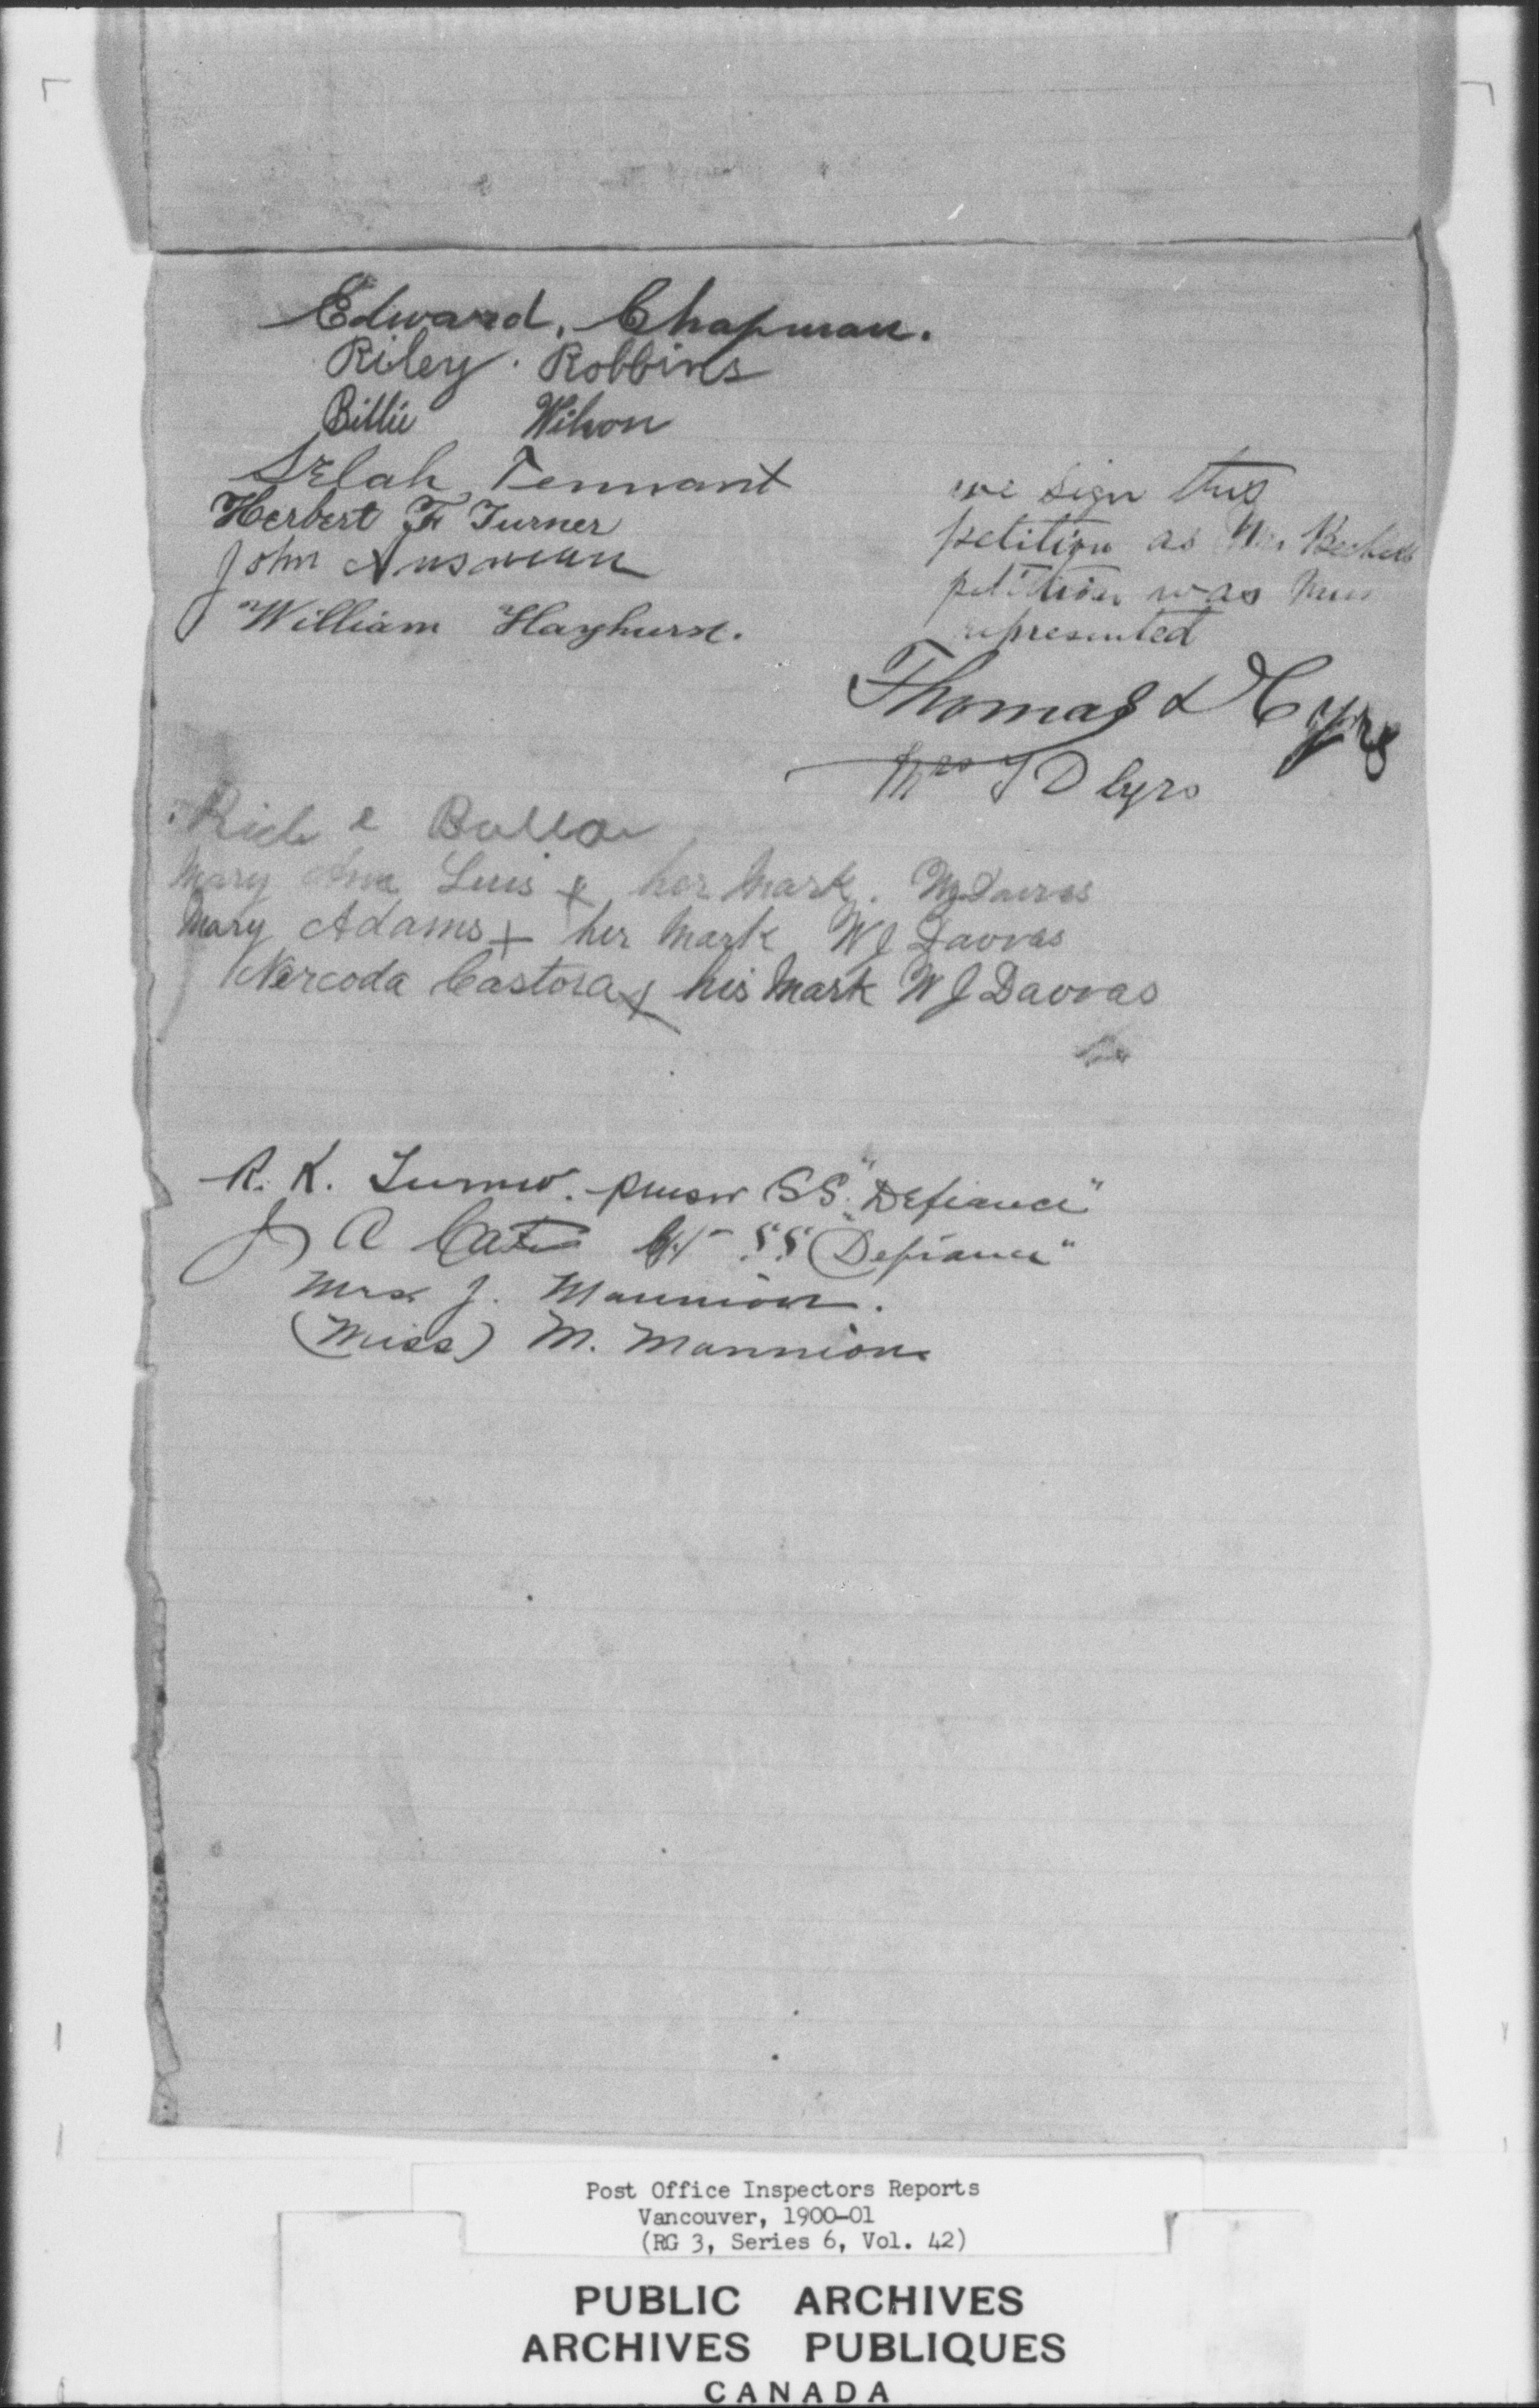 Edward. Chapman.
Riley. Robbins
Billie Wilson
Selah Tennant
Herbert F Turner
John
William Hayhurst.
we sign this
petition as Mr.
petition was
represented
Thomas D Cyrs
Mrs T D Cyrs
Mary Ann Luis x her mark.
Mary Adams + her mark W J Davvas
Nercoda Castora x his mark W J Davvas
R. K. Turner. purser SS. "Defiance"
J A Cates SS "Defiance"
Mrs. J. Mannion.
(Miss) M. Mannion
Post Office Inspectors Reports
Vancouver, 1900-01
(RG 3, Series 6, Vol. 42)
PUBLIC ARCHIVES
ARCHIVES PUBLIQUES
CANADA